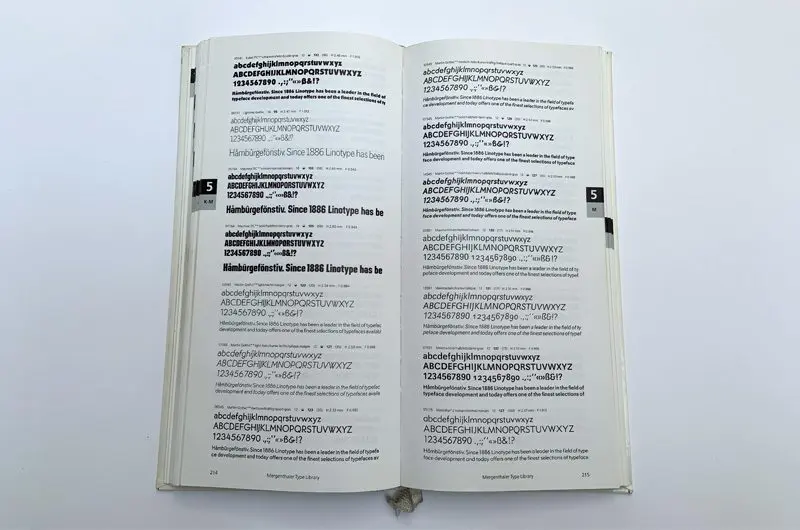 abcdefghijklmnopqrstuvwxyz
ABCDEFGHIJKLMNOPQRSTUVWXYZ
1234567890 .,:;''«»ß&!?
Hâmbürgefönstiv. Since 1886 Linotype has been a leader in the field of
typeface development and today offers one of the finest selections of ty
abcdefghijklmnopqrstuvwxyz
ABCDEFGHIJKLMNOPQRSTUVWXYZ
1234567890 .,:;''«»ß&!?
Hâmbürgefönstiv. Since 1886 Linotype has been
5
K-M
abcdefghijklmnopqrstuvwxyz
ABCDEFGHIJKLMNOPQRSTUVWXYZ
1234567890 .,:;''«»ß&!?
Hâmbürgefönstiv. Since 1886 Linotype has be
abcdefghijklmnopqrstuvwxyz
ABCDEFGHIJKLMNOPQRSTUVWXYZ
1234567890 .,:;''«»ß&!?
Hâmbürgefönstiv. Since 1886 Linotype has be
abcdefghijklmnopqrstuvwxyz
ABCDEFGHIJKLMNOPQRSTUVWXYZ
1234567890 .,:;''«»ß&!?
Hâmbürgefönstiv. Since 1886 Linotype has been a leader in the field of typefac
e development and today offers one of the finest selections of typefaces availabl
abcdefghijklmnopqrstuvwxyz
ABCDEFGHIJKLMNOPQRSTUVWXYZ
1234567890 .,:;''«»ß&!?
Hâmbürgefönstiv. Since 1886 Linotype has been a leader in the field of typefac
e development and today offers one of the finest selections of typefaces availa
abcdefghijklmnopqrstuvwxyz
ABCDEFGHIJKLMNOPQRSTUVWXYZ
1234567890 .,:;''«»ß&!?
Hâmbürgefönstiv. Since 1886 Linotype has been a leader in the field of typefa
ce development and today offers one of the finest selections of typefaces av
214
Mergenthaler Type Library
abcdefghijklmnopqrstuvwxyz
ABCDEFGHIJKLMNOPQRSTUVWXYZ
1234567890 .,:;''«»ß&!?
Hâmbürgefönstiv. Since 1886 Linotype has been a leader in the field of typefa
ce development and today offers one of the finest selections of typefaces av
abcdefghijklmnopqrstuvwxyz
ABCDEFGHIJKLMNOPQRSTUVWXYZ
1234567890 .,:;''«»ß&!?
Hâmbürgefönstiv. Since 1886 Linotype has been a leader in the field of type
face development and today offers one of the finest selections of typefaces
abcdefghijklmnopqrstuvwxyz
ABCDEFGHIJKLMNOPQRSTUVWXYZ
1234567890 .,:;''«»ß&!?
Hâmbürgefönstiv. Since 1886 Linotype has been a leader in the field of type
face development and today offers one of the finest selections of typefaces
5
M
abcdefghijklmnopqrstuvwxyz
ABCDEFGHIJKLMNOPQRSTUVWXYZ
1234567890 1234567890 .,:;''«»ß&!?
Hâmbürgefönstiv. Since 1886 Linotype has been a leader in the field of ty
peface development and today offers one of the finest selections of typef
abcdefghijklmnopqrstuvwxyz
ABCDEFGHIJKLMNOPQRSTUVWXYZ
1234567890 1234567890 .,:;''«»ß&!?
Hâmbürgefönstiv. Since 1886 Linotype has been a leader in the field of ty
peface development and today offers one of the finest selections of typef
abcdefghijklmnopqrstuvwxyz
ABCDEFGHIJKLMNOPQRSTUVWXYZ
1234567890 1234567890 .,:;''«»ß&!?
Hâmbürgefönstiv. Since 1886 Linotype has been a leader in the field of
typeface development and today offers one of the finest selections of
abcdefghijklmnopqrstuvwxyz
ABCDEFGHIJKLMNOPQRSTUVWXYZ
1234567890 .,:;''«»ß&!?
Hâmbürgefönstiv. Since 1886 Linotype has been a leader in the field of type
face development and today offers one of the finest selections of typeface
Mergenthaler Type Library
215